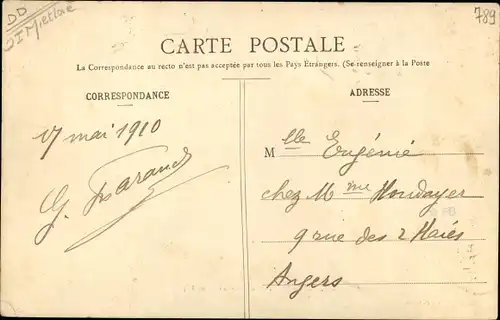 DD
789
CARTE POSTALE
La Correspondance au recto n'est pas acceptée par tous les Pays Étrangers. (Se renseigner à la Poste
CORRESPONDANCE
17 mai 1910
G.
ADRESSE
Mlle Eugénie
chez Mme Houdayer
9 rue des 2 Haies
Angers